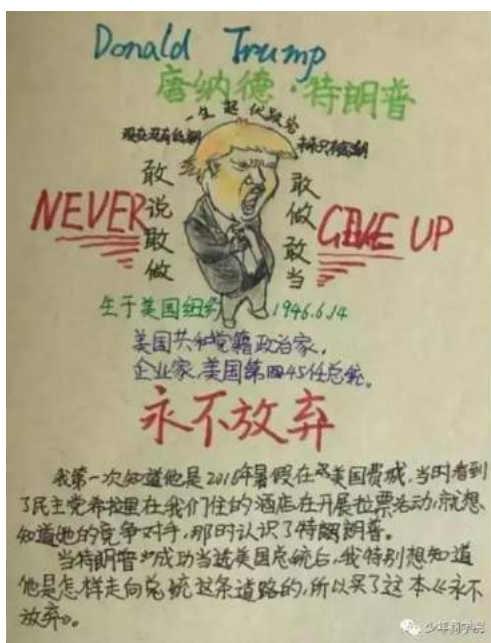 Donald Trump
唐纳德·特朗普
一生起伏跌宕
现在没有低潮
未来只有高潮
敢说敢做
敢做敢当
NEVER GIVE UP
生于美国纽约 1946.6.14
美国共和党籍政治家，
企业家，美国第四45任总统。
永不放弃
我第一次知道他是2016年暑假在美国费城，当时看到
了民主党希拉里在我们住的酒店在开展拉票活动，就想
知道她的竞争对手，那时认识了特朗普。
当特朗普成功当选美国总统后，我特别想知道
他是怎样走向总统这条道路的，所以买了这本《永不
放弃》。
少年商学院